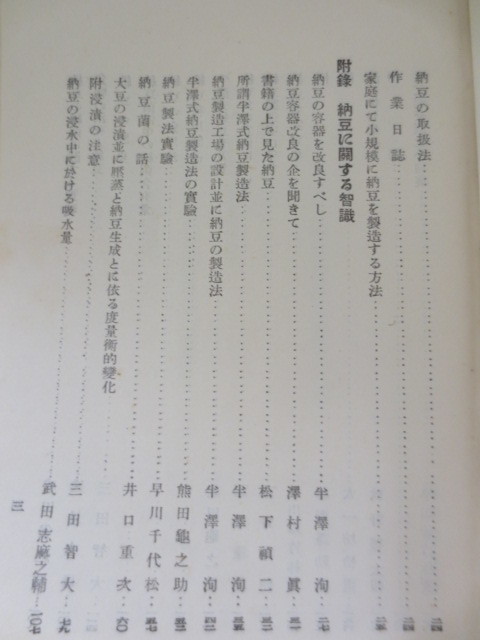 納豆の取扱法
作業日誌
家庭にて小規模に納豆を製造する方法
附錄 納豆に關する智識
納豆の容器を改良すべし 半澤洵
納豆容器改良の企を聞きて 澤村眞
書籍の上で見た納豆 松下禎二
所謂半澤式納豆製造法 半澤洵
納豆製造工場の設計並に納豆の製造法 半澤洵
半澤式納豆製造法の實驗 熊田龜之助
納豆製法實驗 早川千代松
納豆菌の話 井口重次 六〇
大豆の浸漬並に蒸と納豆生成とに依る度量衡的變化 三田智大 七九
附浸漬の注意
納豆の浸水中に於ける吸水量 武田志麻之輔 一〇七
三